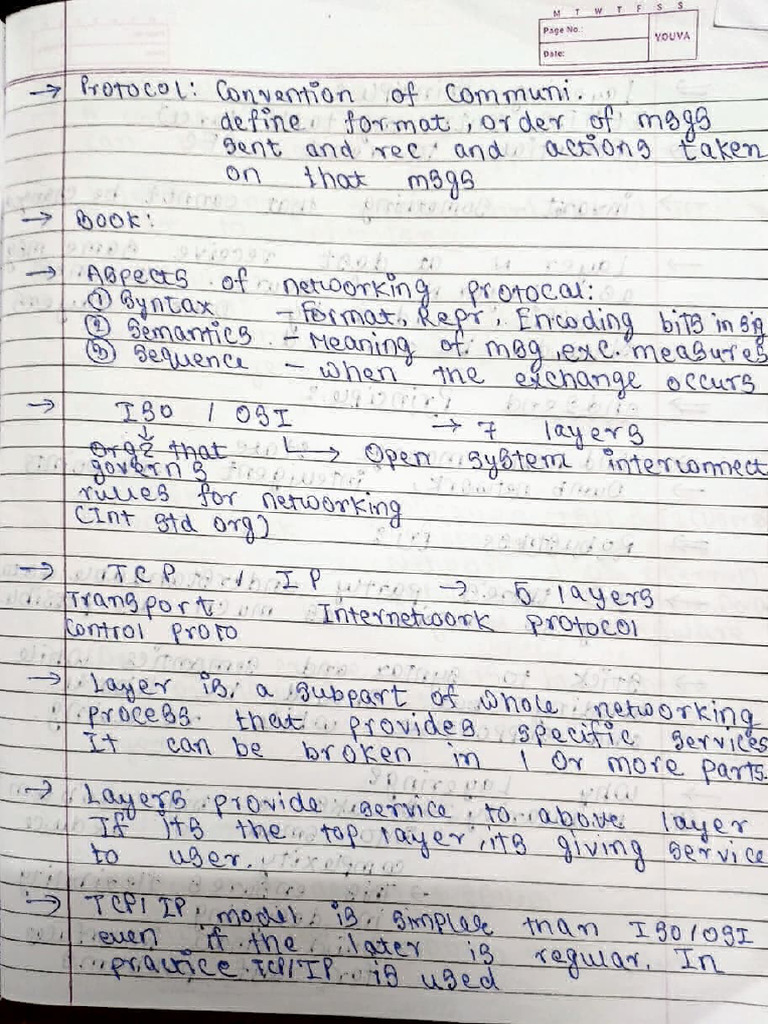 M T W T F S S
Page No.:
YOUVA
Date:
→ Protocol: Convention of communi.
define format, order of msgs
sent and rec and actions taken
on that msgs
→ Book:
→ Aspects of networking protocal:
① Syntax - Format, Repr, Encoding bits in sig
② Semantics - Meaning of msg, exc. measures
③ Sequence - when the exchange occurs
→ ISO / OSI → 7 layers
↓
orgz that ↳ Open system interconnect
governs
rules for networking
(Int std org)
→ TCP / IP → 5 layers
Transport Internetwork protocol
Control proto
→ Layer is a subpart of whole networking
process that provides specific services
It can be broken in 1 or more parts.
→ Layers provide service to above layer
If its the top layer, its giving service
to user.
→ TCP/IP model is simpler than ISO/OSI
even if the later is regular. In
practice TCP/IP is used